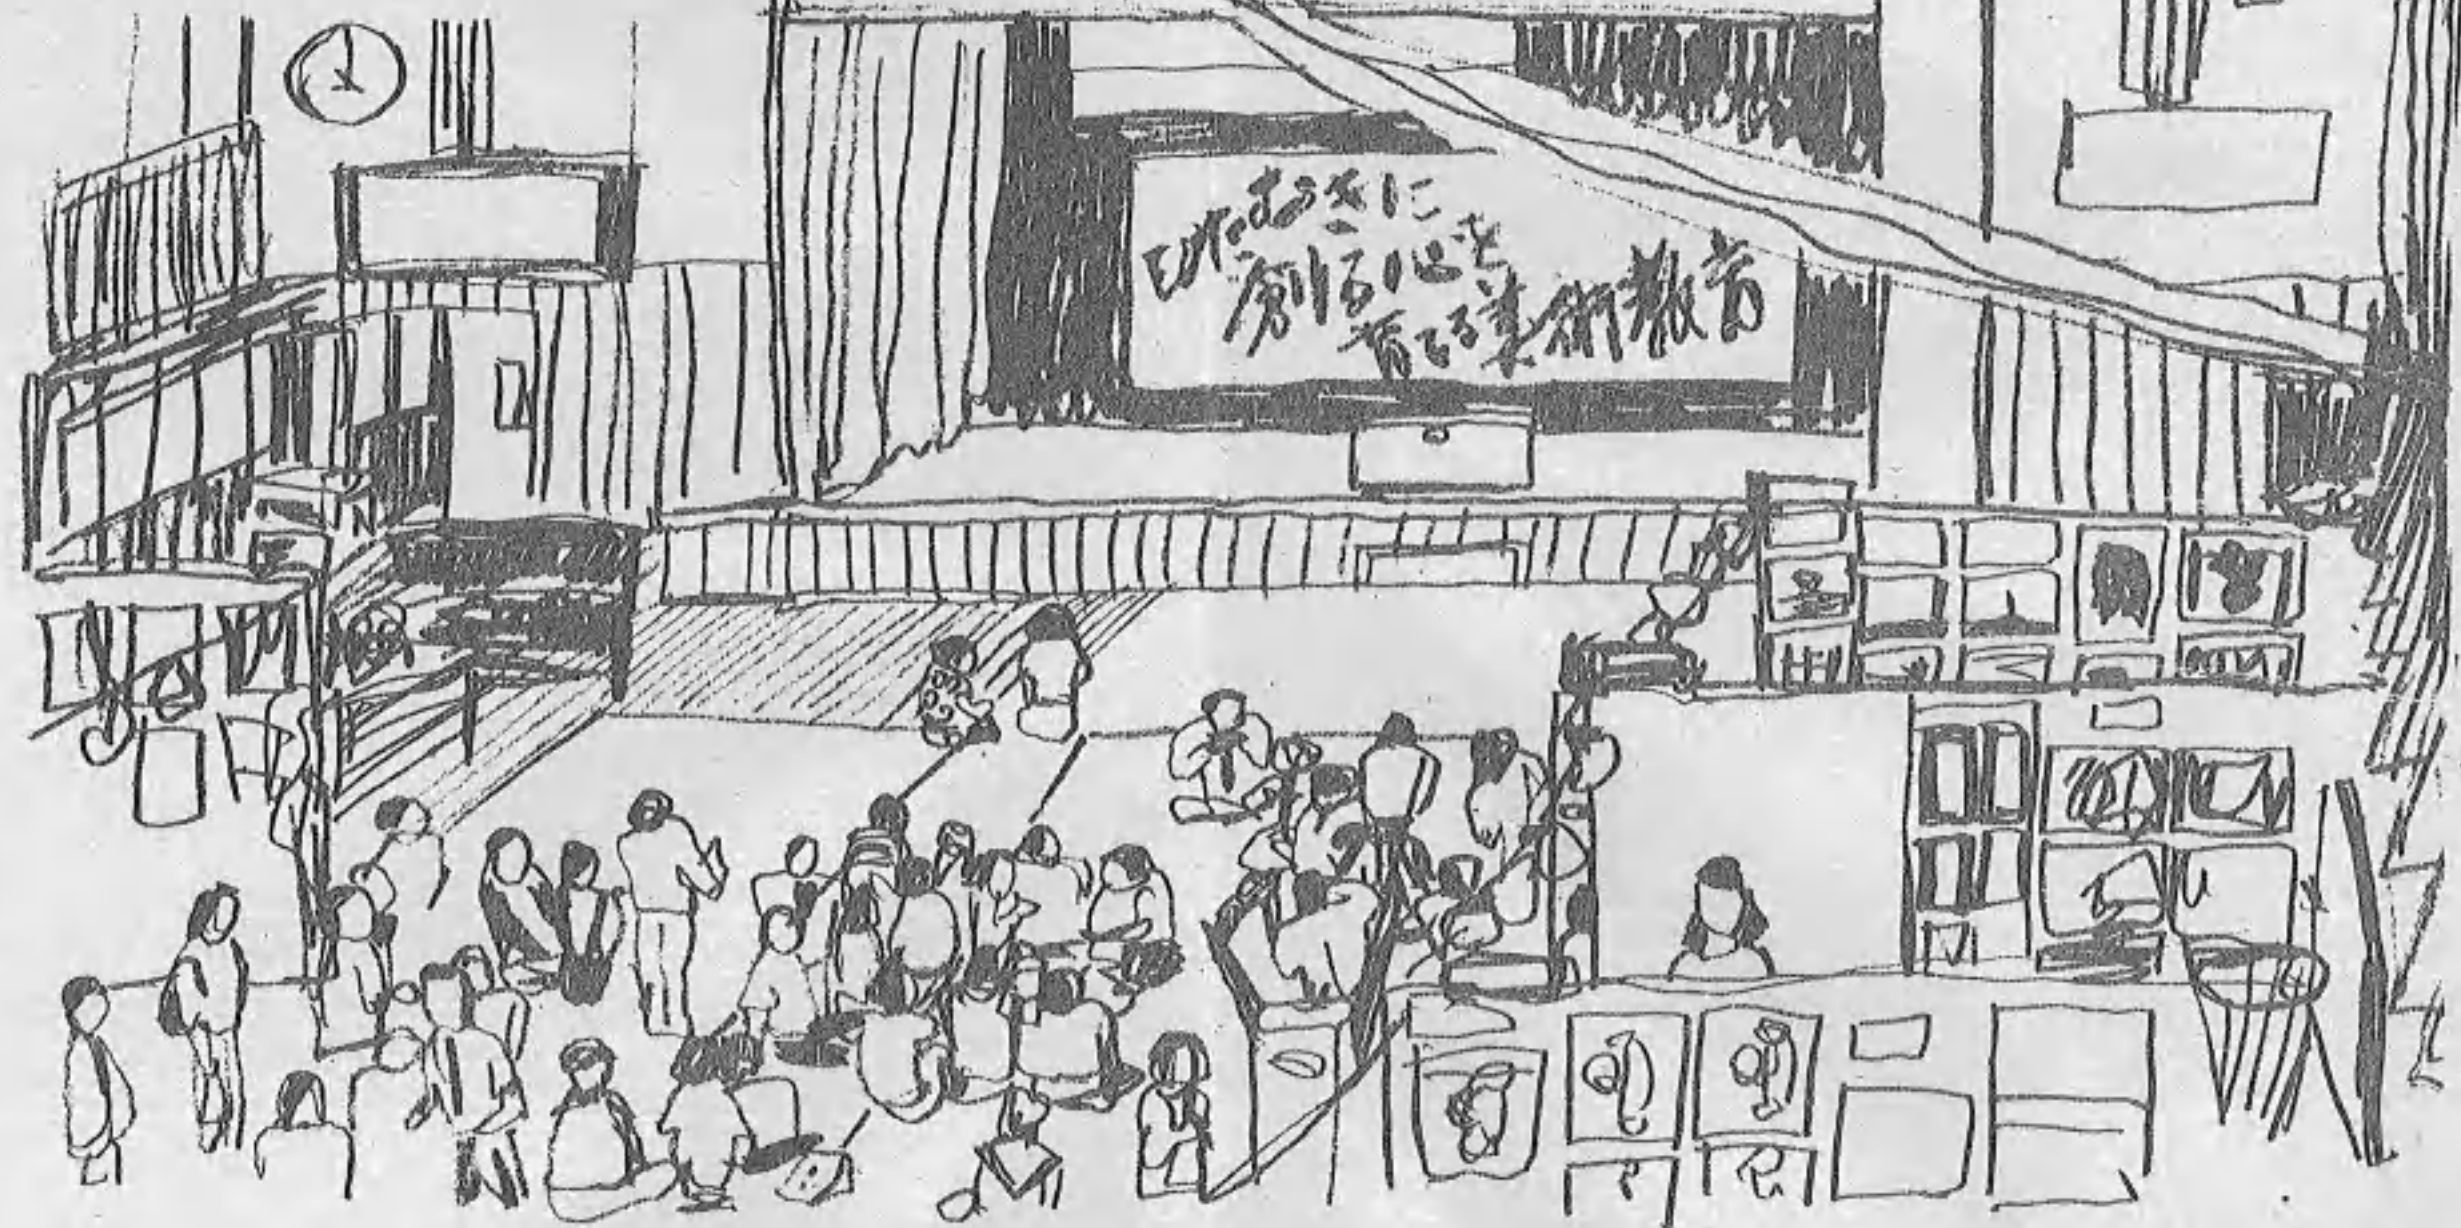 ひたむきに
創る心を
育てる美術教育